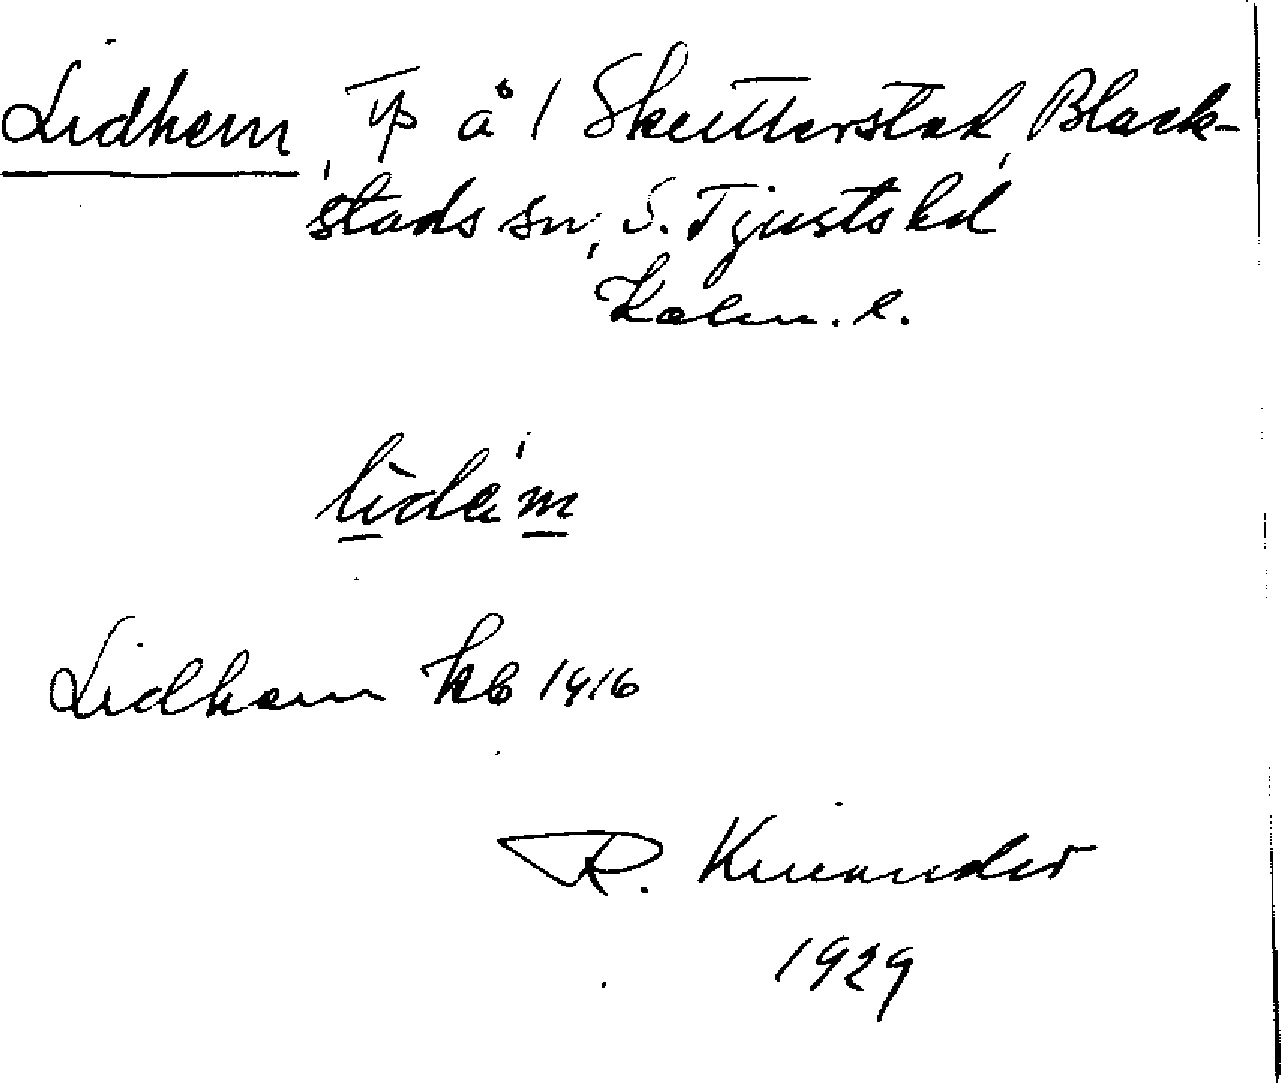 Lidhem, Tp å 1 Skutterstad, Black-
stads sn, S. Tjusts hd
Kalm. l.
lidäm
Lidhem kb 1916
R. Kinander
1929